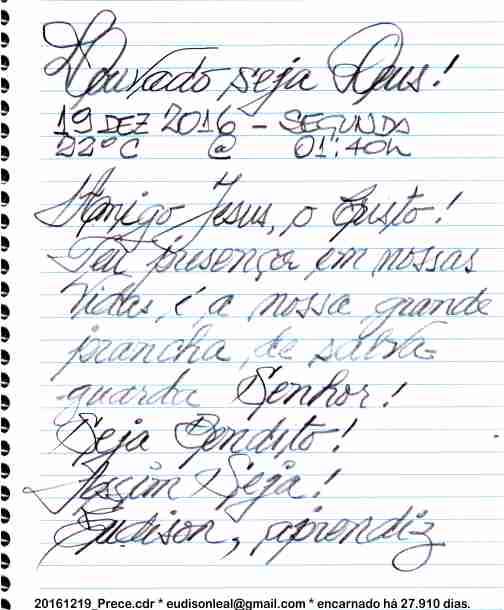 Louvado seja Deus!
19 DEZ 2016 - SEGUNDA
22°C @ 01:40h
Amigo Jesus, o Justo!
Teu presença em nossas
vidas, é a nossa grande
prancha, de salva-
guarda Senhor!
Seja Bendito!
Assim Seja!
Eudison, aprendiz
20161219_Prece.cdr * eudisonleal@gmail.com * encarnado há 27.910 dias.